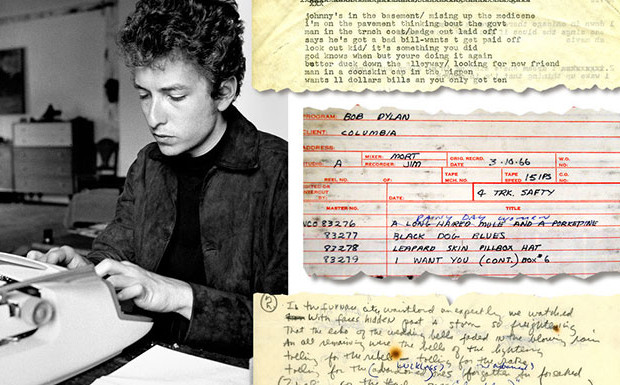 johnny's in the basement/ mixing up the medicene
i'm on the pavement thinking bout the govt
man in a trnch coat/badge out laid off
says he's got a bad bill-wants t get paid off
look out kid/ it's something you did
god knows when but youre doing it again
better duck down the alleyway/ looking for new friend
man in a coonskin cap in the pigpen
wants 11 dollars bills an you only got ten
PROGRAM: BOB DYLAN
CLIENT: COLUMBIA
ADDRESS:
STUDIO: A MIXER: MORT ORIG. RECRD. 3-10-66 W.O. NO.
RECORDER JIM DATE:
REEL NO. OF: TAPE MCH. NO. TAPE SPEED 15 IPS C.O. NO.
DATE: 4 TRK. SAFTY
MASTER NO. TITLE
RAINY DAY WOMEN
NCO 83276 A LONG HAIRED MULE AND A PORKEPINE
83277 BLACK DOG BLUES
83278 LEAPARD SKIN PILLBOX HAT
83279 I WANT YOU (CONT.) BOX #6
2
In the furnace city unexpectedly we watched
With faces hidden past a storm so frightening
That the echo of the wedding bells faded in the blowing rain
An all remaining were the bells of the lightening
tolling for the rebel - tolling for the rake
LUCKLESS
tolling for the (abandoned) ones forsaked